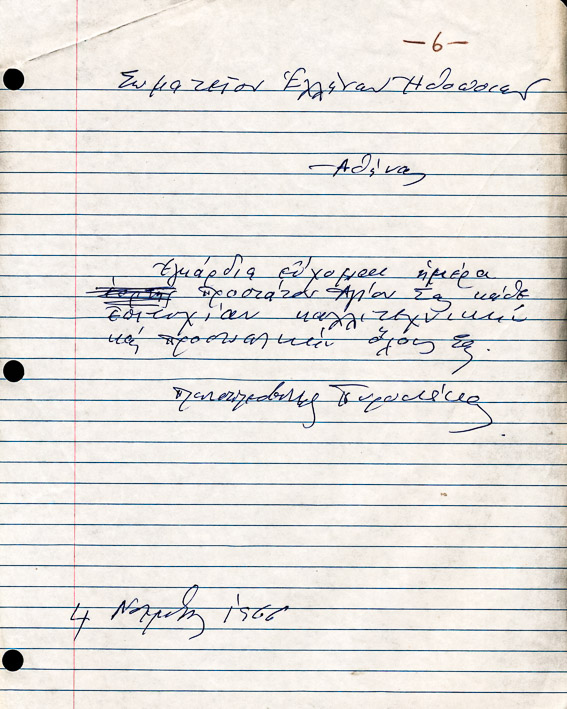 -6-
Σωματεῖον Ἑλλήνων Ἠθοποιῶν
-Ἀθήνας
Ἐγκάρδια εὔχομαι ἡμέρα
προστάτου Ἁγίου Σας κάθε
ἐπιτυχίαν καλλιτεχνικήν
καί προσωπικήν ὅλους Σας.
4 1966